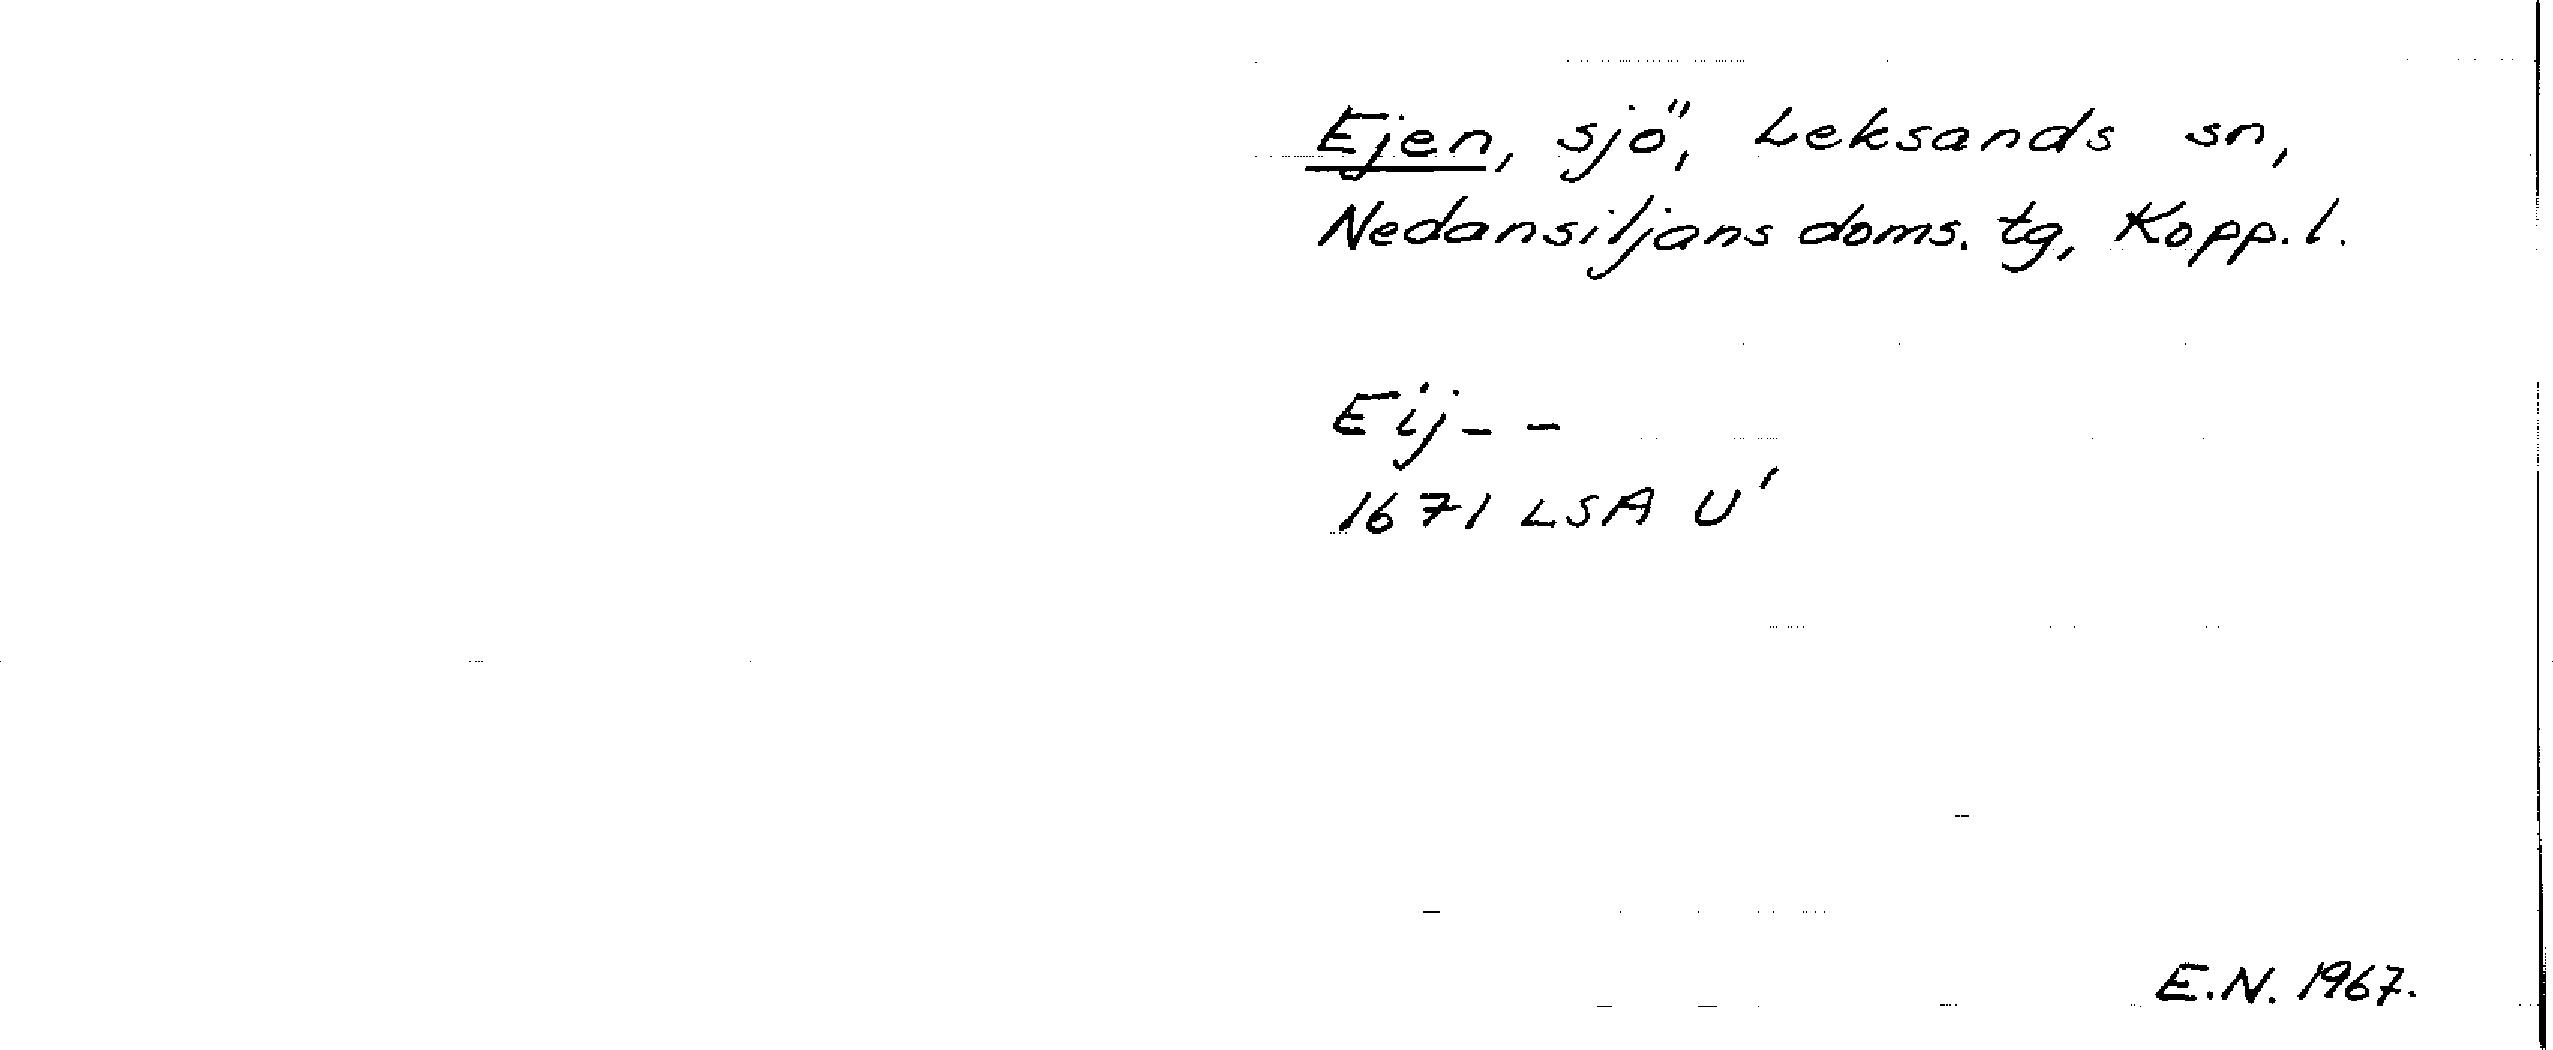 Ejen, sjö, Leksands sn,
Nedansiljans doms. tg, Kopp. l.
Eij - -
1671 LSA U'
E.N. 1967.